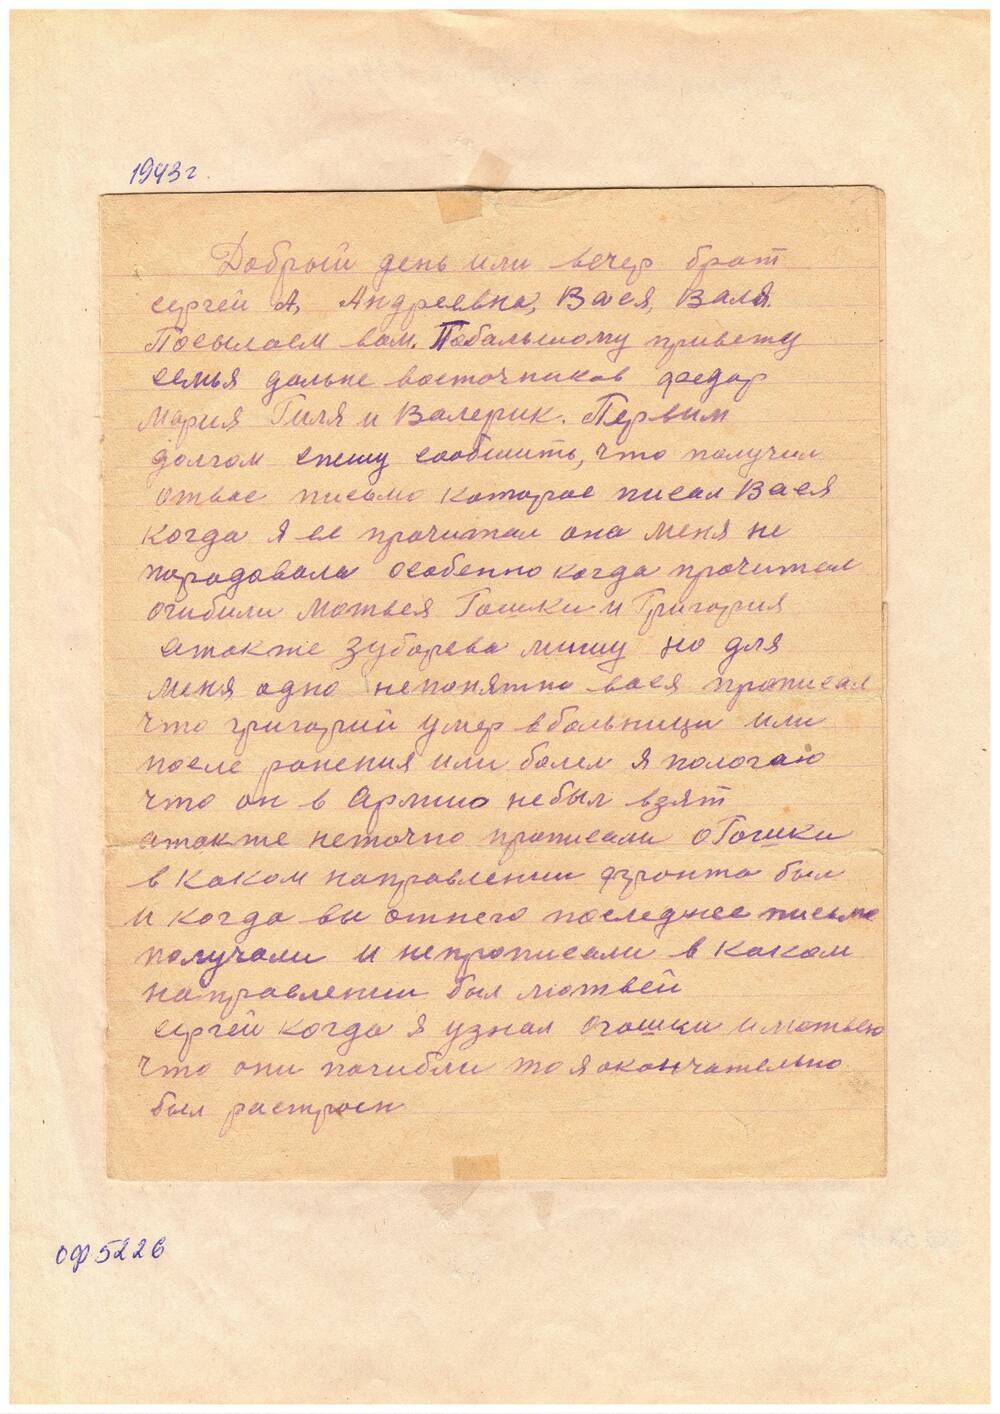 1943 г.
Добрый день или вечер брат
сергей А, Андреевна, Вася, Валя.
Посылаем вам. Побальшому привету
семья дальне васточников федор
Мария Гиля и Валерик. Первым
долгом спешу сообшить, что получил
отвас письмо которое писал Вася
когда я ее прочитал она меня не
породовала особенно когда прочитал
очибили Матвея Гошки и Григория
атакже Зубарева мишу но для
меня одно непонятно вася прописал
что григорий умер вбольници или
после ранения или болел я пологаю
что он в Армию небыл взят
атакже неточно прописали оГошки
в каком направлении фронта был
и когда вы отнего последнее письмо
получали и непрописали в каком
направлении был матвей
сергей когда я узнал огошки иматвею
что они погибли то я окончательно
был растроен
ОФ 5226